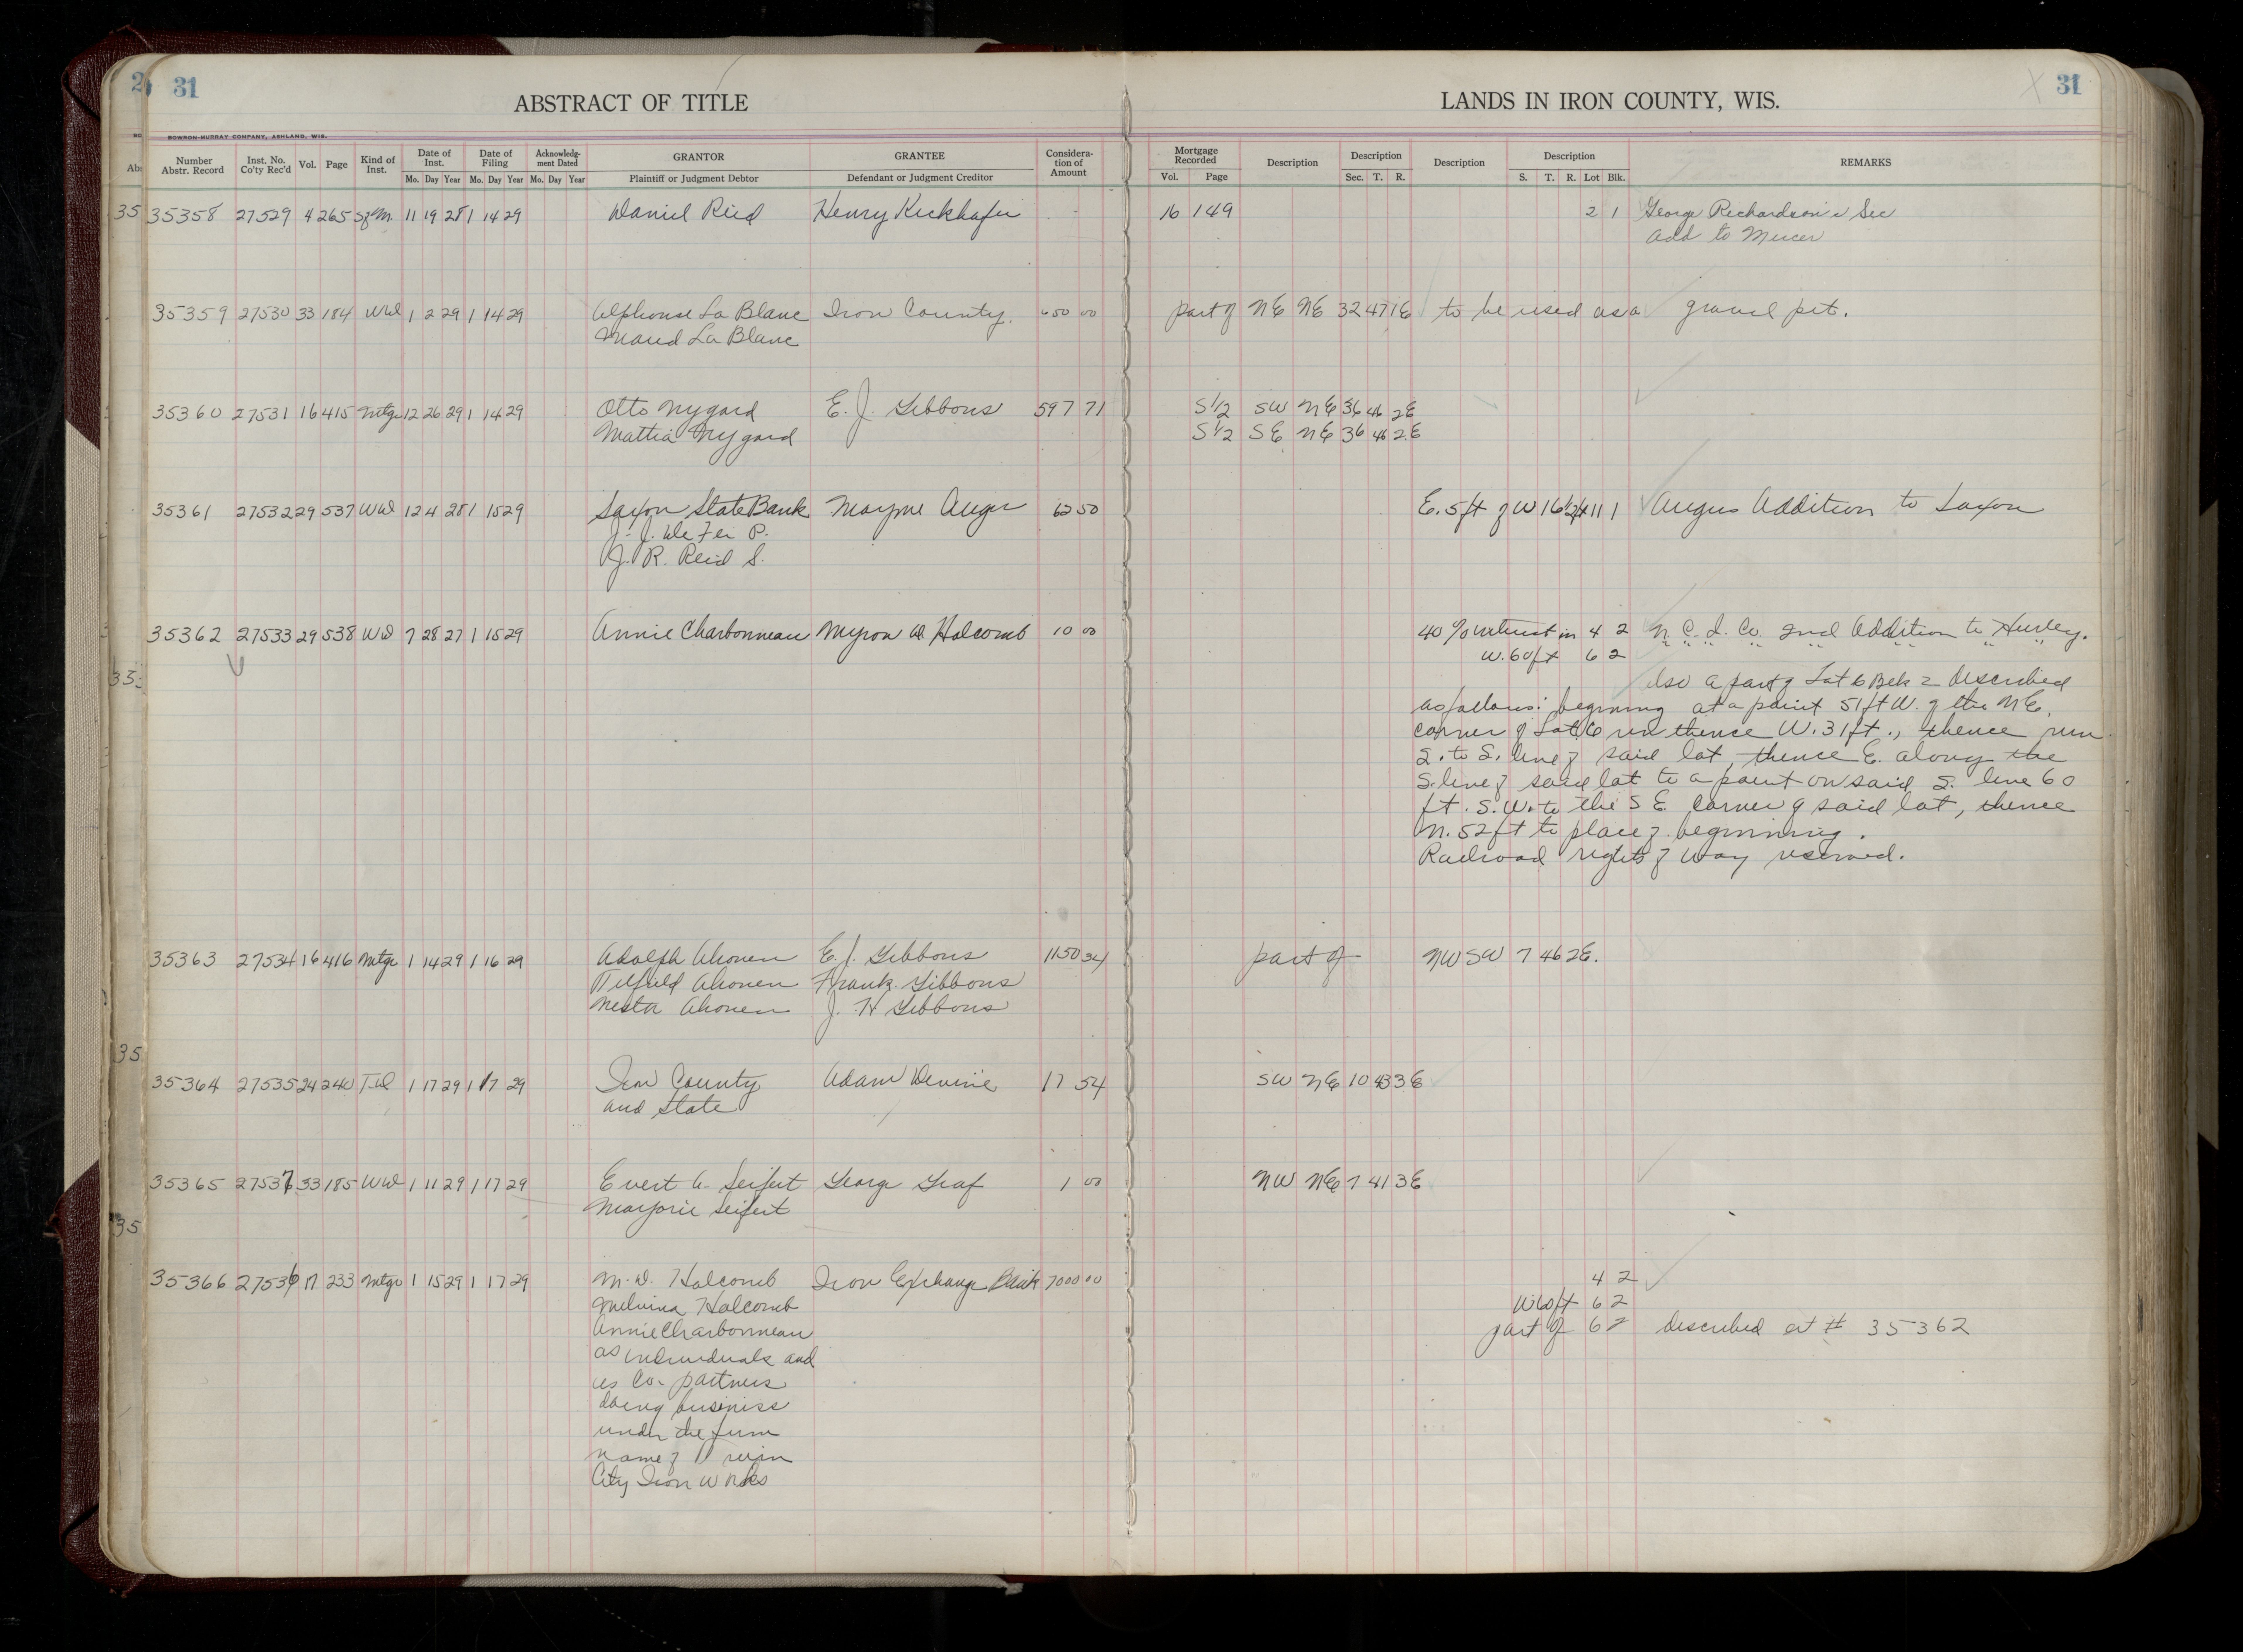 31
31
ABSTRACT OF TITLE
LANDS IN IRON COUNTY, WIS.
BOWRON-MURRAY COMPANY, ASHLAND, WIS.
Number Abstr. Record Inst. No. Co'ty Rec'd Vol. Page Kind of Inst. Date of Inst. Date of Filing Acknowledgment Dated GRANTOR GRANTEE Consideration of Amount Mortgage Recorded Description Description Description Description REMARKS
Mo. Day Year Mo. Day Year Mo. Day Year Plaintiff or Judgment Debtor Defendant or Judgment Creditor Vol. Page Sec. T. R. S. T. R. Lot Blk.
35358 27529 4 265 11 19 28 1 14 29 Daniel Reid Henry Kickhafer 16 149 2 1 George Richardson's Sec
Add to Mercer
35359 27530 33 184 WD 1 2 29 1 14 29 Alphonse La Blanc Iron County. 650 00 part of NE NE 32 47 1E to be used as a gravel pit.
Maud La Blanc
35360 27531 16 415 Mtge 12 26 29 1 14 29 Otto Nygard E. J. Gibbons 597 71 S1/2 SW NE 36 46 2E
Mattia Nygard S1/2 SE NE 36 46 2E
35361 27532 29 537 WD 12 4 28 1 15 29 Saxon State Bank Mayme Auger 62 50 E. 5ft of W 16 1/2 ft 11 1 Angus Addition to Saxon
J. J. De Fer P.
J. R. Reid S.
35362 27533 29 538 WD 7 28 27 1 15 29 Annie Charbonneau Myron D. Holcomb 10 00 40% interest in 4 2 N. C. I. Co. 2nd Addition to Hurley.
W. 60ft 6 2 " " " " " " " "
Also a part of Lot 6 Blk 2 described
as follows: beginning at a point 51ft W. of the NE.
corner of Lot 6 run thence W. 31ft., thence run
S. to S. line of said lot, thence E. along the
S. line of said lot to a point on said S. line 60
ft. S. W. to the S E. corner of said lot, thence
N. 52ft to place of beginning.
Railroad rights of way reserved.
35363 27534 16 416 Mtge 1 14 29 1 16 29 Adolph Ahonen E. J. Gibbons 1150 34 part of NW SW 7 46 2E.
Ahonen Frank Gibbons
Nestor Ahonen J. H Gibbons
35364 27535 24 240 T.D 1 17 29 1 17 29 Iron County Adam Devine 17 54 SW NE 10 43 3E
and State
35365 27537 33 185 WD 1 11 29 1 17 29 Evert A. Seifert George Graf 1 00 NW NE 7 41 3E
Marjorie Seifert
35366 27536 17 233 Mtge 1 15 29 1 17 29 M. D. Holcomb Iron Exchange Bank 7000 00 4 2
Melvina Holcomb W60ft 6 2
Annie Charbonneau part of 6 2 described at # 35362
as individuals and
as Co. partners
doing business
under the firm
name of
City Iron Works